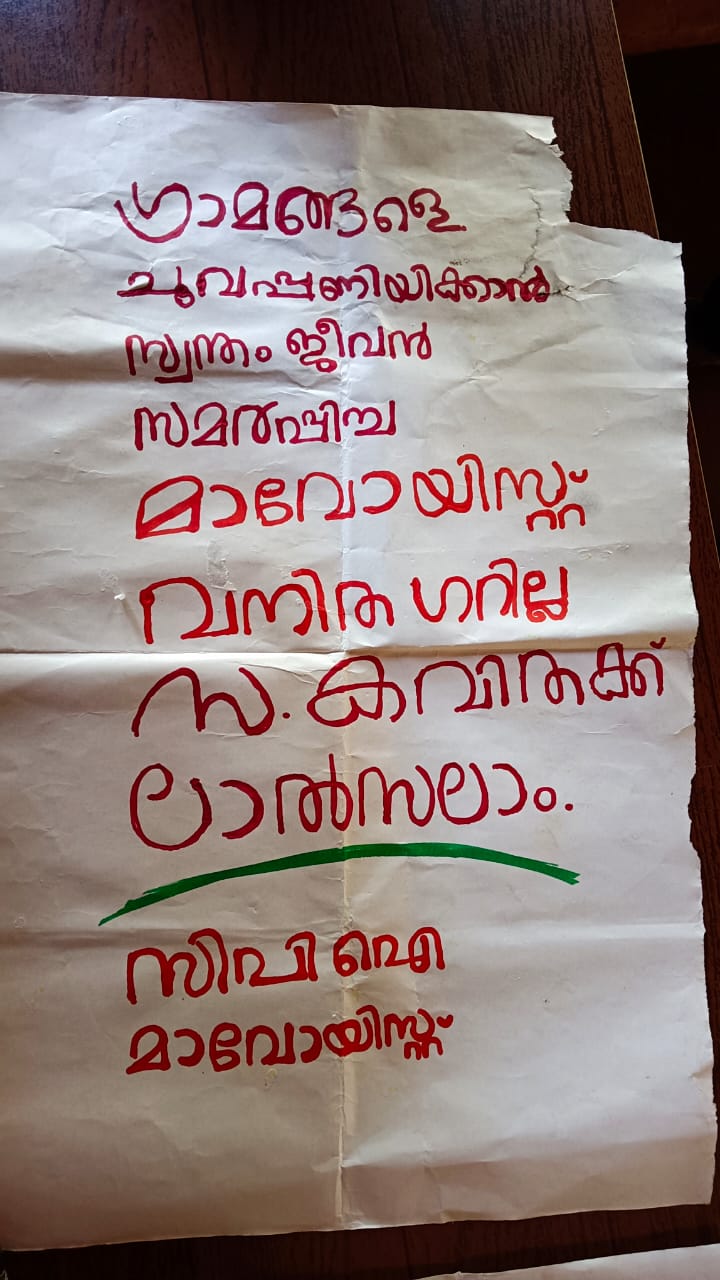 ഗ്രാമങ്ങളെ
ചുവപ്പണിയിക്കാൻ
സ്വന്തം ജീവൻ
സമർപ്പിച്ച
മാവോയിസ്റ്റ്
വനിത ഗറില്ല
സ. കവിതക്ക്
ലാൽസലാം.
സിപിഐ
മാവോയിസ്റ്റ്